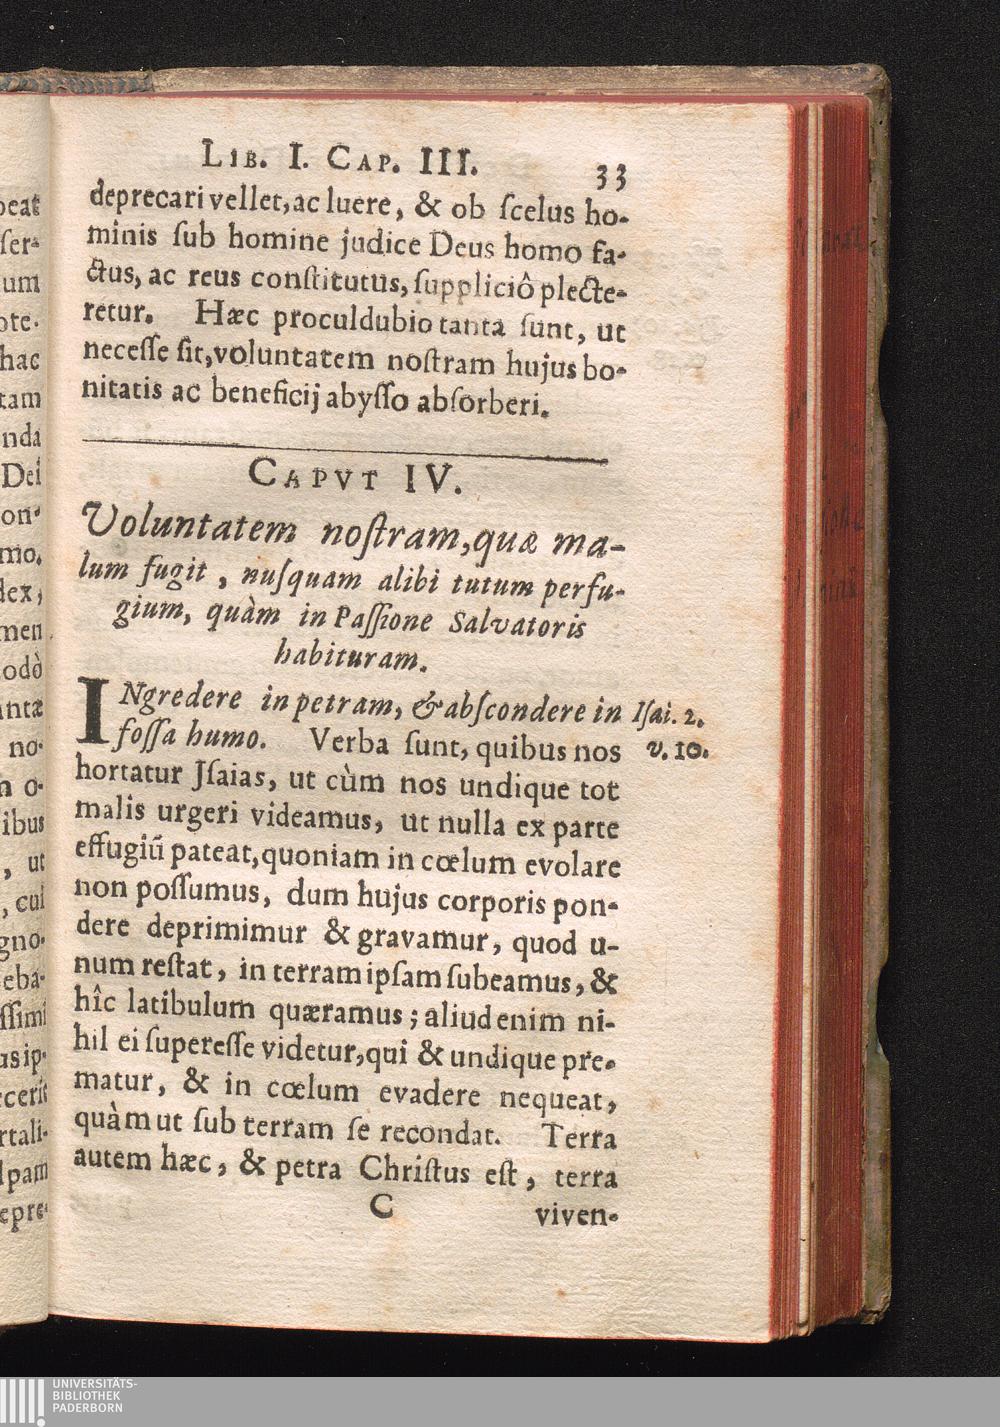 LIB. I. CAP. III. 33
deprecari vellet, ac luere, & ob ſcelus ho-
minis ſub homine judice Deus homo fa-
ctus, ac reus conſtitutus, ſuppliciô plecte-
retur. Hæc proculdubio tanta ſunt, ut
neceſſe ſit, voluntatem noſtram hujus bo-
nitatis ac beneficij abyſſo abſorberi.
CAPVT IV.
Voluntatem noſtram, quæ ma-
lum fugit, nuſquam alibi tutum perfu-
gium, quàm in Paſſione Salvatoris
habituram.
INgredere in petram, & abſcondere in Iſai. 2.
foſſa humo. Verba ſunt, quibus nos v. 10.
hortatur Jſaias, ut cùm nos undique tot
malis urgeri videamus, ut nulla ex parte
effugiũ pateat, quoniam in cœlum evolare
non poſſumus, dum hujus corporis pon-
dere deprimimur & gravamur, quod u-
num reſtat, in terram ipſam ſubeamus, &
hîc latibulum quæramus; aliud enim ni-
hil ei ſupereſſe videtur, qui & undique pre-
matur, & in cœlum evadere nequeat,
quàm ut ſub terram ſe recondat. Terra
autem hæc, & petra Chriſtus eſt, terra
C viven-
UNIVERSITÄTS-
BIBLIOTHEK
PADERBORN